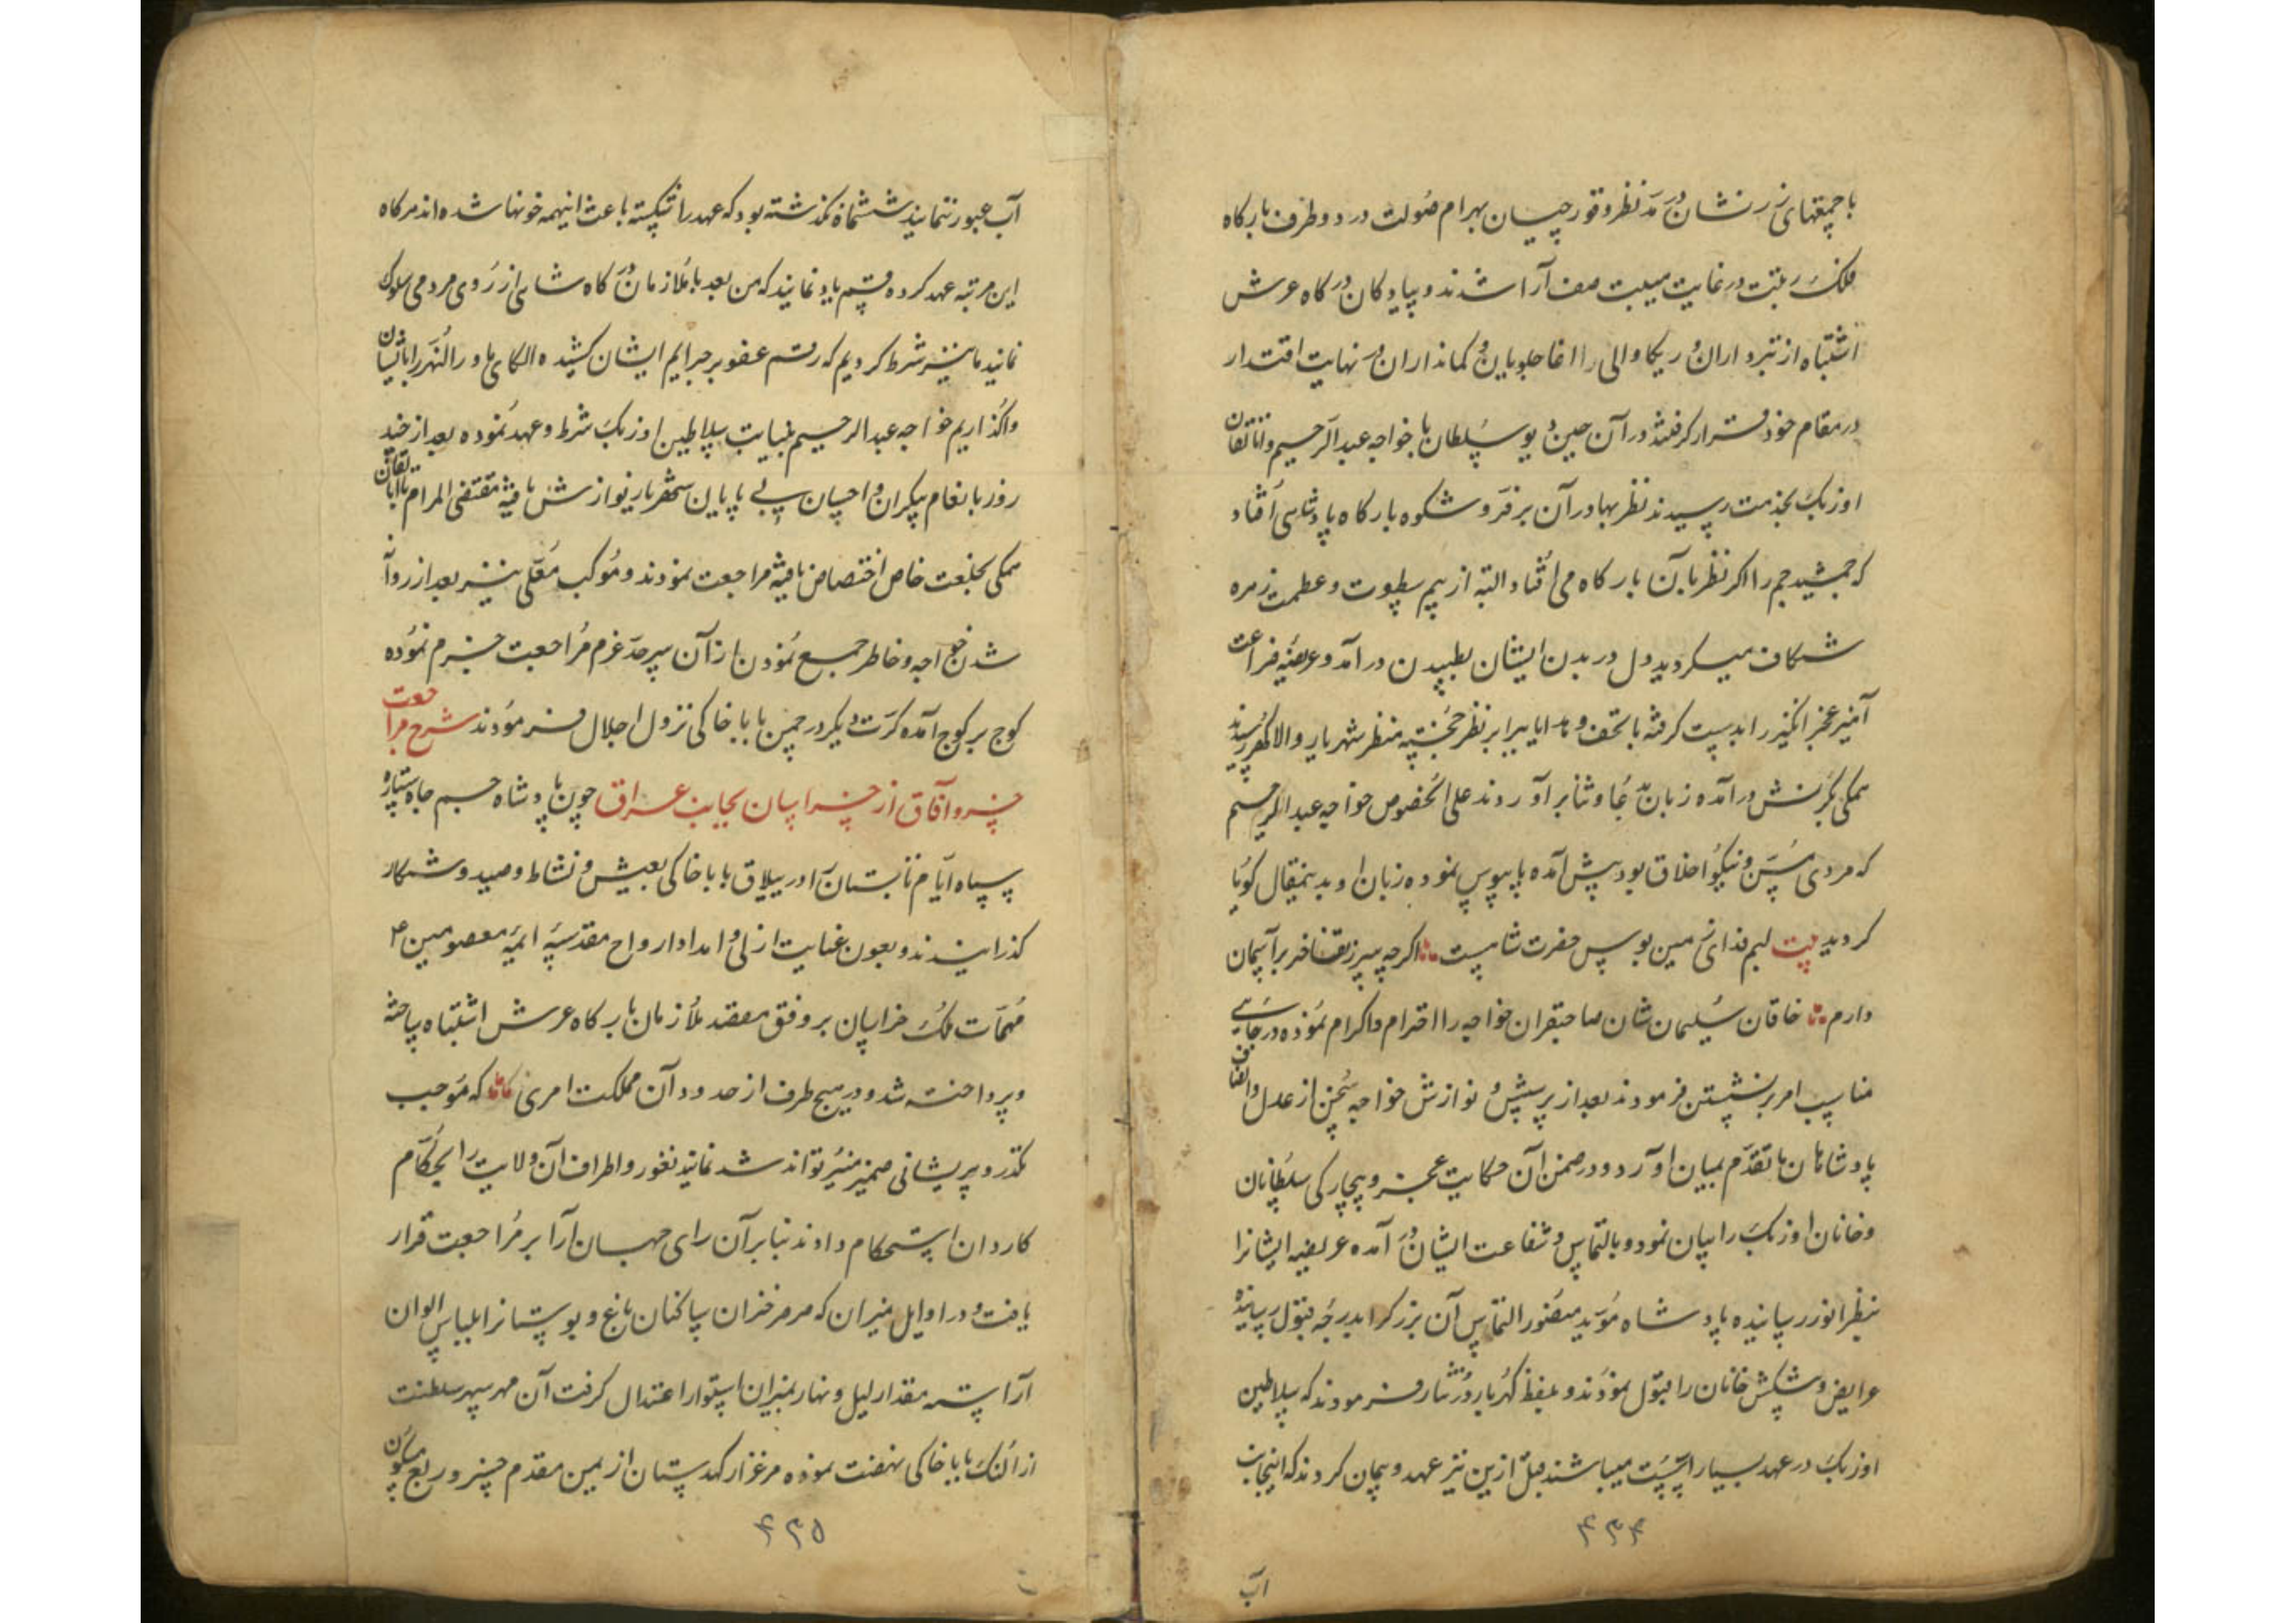 با جمقهای زر نشان در مد نظر و قورچیان بهرام صولت در دو طرف بارکاه
فلک رتبت در غایت هیبت صف آرا شدند و پیادکان درکاه عرش
اشتباه از تبرداران و ریکا و الی را اغا جلویان و کمانداران در نهایت اقتدار
در مقام خود قرار کرفتند در آن حین دیو سلطان با خواجه عبدالرحیم و اتالیقان
اوزبک بخدمت رسیدند نظر بهادران بر فر و شکوه بارکاه پادشاهی افتاد
که جمشید جم را اکر نظر بآن بارکاه می افتاد البته از بیم سطوت و عظمت زهره
شکاف میکردید دل در بدن ایشان بطپیدن درآمد و عریضه ضراعت
آمیز عجز انکیز را بدست کرفته با تحف و هدایا برابر نظر خجسته منظر شهریار والاکهر رسیدند
همکی بکرنش درآمده زبان بدعا و ثنا برآوردند علی الخصوص خواجه عبدالرحیم
که مردی مسن و نیکو اخلاق بود پیش آمده پابوس نموده زبان او بدینمقال کویا
کردید بیت لبم فدای زمین بوس حضرت شاهیست اکرچه سر ز تفاخر بر آسمان
دارم خاقان سلیمان شان صاحبقران خواجه را احترام و اکرام نموده در جایی
مناسب امر بر نشستن فرمودند بعد از پرسش و نوازش خواجه سخن از عدل و انصاف
پادشاهان ما تقدم بمیان آورد و در ضمن آن حکایت عجز و بیچارکی سلطانان
و خانان اوزبک را بیان نمود و بالتماس و شفاعت ایشان در آمده عریضه ایشانرا
بنظر انور رسانیده پادشاه مؤید منصور التماس آن بزرک را بدرجه قبول رسانیده
عرایض و پیشکش خانان را قبول نمودند و بلفظ کهربار درنثار فرمودند که سلاطین
اوزبک در عهد بسیار سست میباشند قبل ازین نیز عهد و پیمان کردند که اینجانب
۴۳۴
اب
آب عبور ننمایند ششماه نکذشته بود که عهد را شکسته باعث اینهمه خونها شده اند هرکاه
این مرتبه عهد کرده قسم یاد نمایند که من بعد با ملازمان درکاه شاهی از روی مردمی سلوک
نمایند ما نیز شرط کردیم که رقم عفو بر جرایم ایشان کشیده الکای ماوراالنهر را باایشان
واکذاریم خواجه عبدالرحیم بنیابت سلاطین اوزبک شرط و عهد نموده بعد از چند
روز بانعام بیکران و احسان بی پایان شهریار نوازش یافته مقتضی المرام با اتالیقان
همکی بخلعت خاص اختصاص یافته مراجعت نمودند و موکب معلی نیز بعد از روانه
شدن خواجه و خاطر جمع نمودن از آن سرحد عزم مراجعت جزم نموده
کوچ بر کوچ آمده کرت دیکر در چمن بابا خاکی نزول اجلال فرمودند شرح مراجعت
خسرو آفاق از خراسان بجانب عراق چون پادشاه جم جاه ستاره
سپاه ایام تابستان را در ییلاق بابا خاکی بعیش و نشاط و صید و شکار
کذرانیدند و بعون عنایت ازلی و امداد ارواح مقدسه ایمه معصومین ع
مهمات ملک خراسان بر وفق مقصد ملازمان بارکاه عرش اشتباه ساخته
و پرداخته شد و در هیچ طرف از حدود آن مملکت امری نماند که موجب
تکدر و پریشانی ضمیر منیر تواند شد نمانید ثغور و اطراف آن ولایت را بحکام
کاردان استحکام دادند بنا بر آن رای جهان آرا بر مراجعت قرار
یافت و در اوایل میزان که مر مر خزان ساکنان باغ و بوستانرا بلباس الوان
آراسته مقدار لیل و نهار بمیزان استوا اعتدال کرفت آن مهر سپهر سلطنت
از النک بابا خاکی نهضت نموده مرغزار کهدستان از یمن مقدم خسرو ربع مسکون
۴۳۵